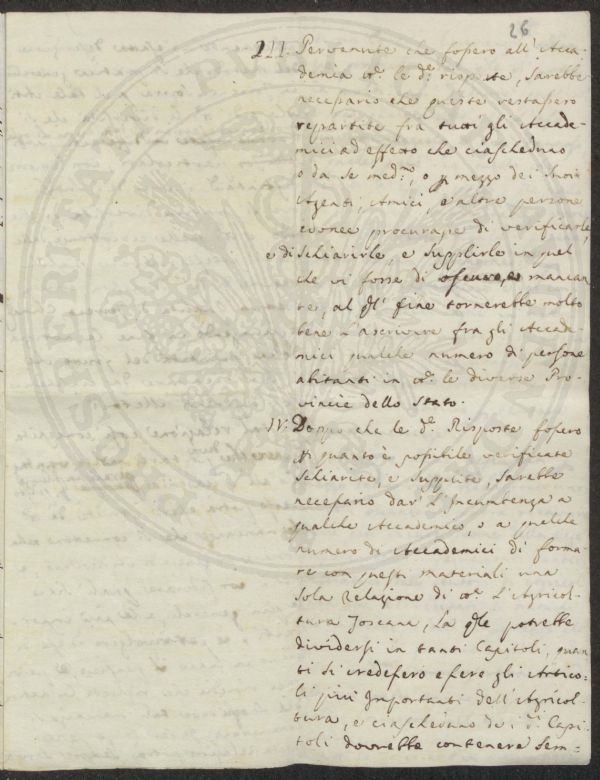 26
III. Pervenute che fossero all'Acca-
demia tte. le de. risposte, sarebbe
necessario che queste restassero
repartite fra tutti gli Accade-
mici ad effetto che ciascheduno
o da se med.mo, o p mezzo dei suoi
Agenti, Amici, e altre persone
idonee procurasse di verificarle,
e di schiarirle, e supplirle in quel
che vi fosse di oscuro, e mancan-
te, al ql' fine tornerebbe molto
bene l'ascrivere fra gli Accade-
mici qualche numero di persone
abitanti in tte. le diverse Pro-
vincie dello Stato.
IV. Doppo che le de. Risposte fossero
p quanto è possibile verificate
schiarite, e supplite, sarebbe
necessario dar l'Incumbenza a
qualche Accademico, o a qualche
numero di Accademici di forma-
re con questi materiali una
sola Relazione di tta. l'Agricol-
tura Toscana, la qle potrebbe
dividersi in tanti Capitoli, quan-
ti si credessero essere gli Artico-
li più Importanti dell'Agricol-
tura, e ciascheduno de i di. Capi-
toli dovrebbe contenere sem=
PROSPERITATI PUBLICAE AUGENDAE